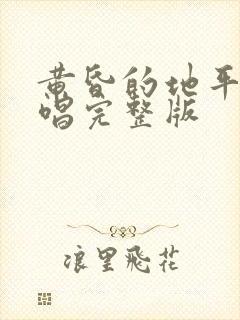 黄昏的地平
唱完整版
浪里飛花